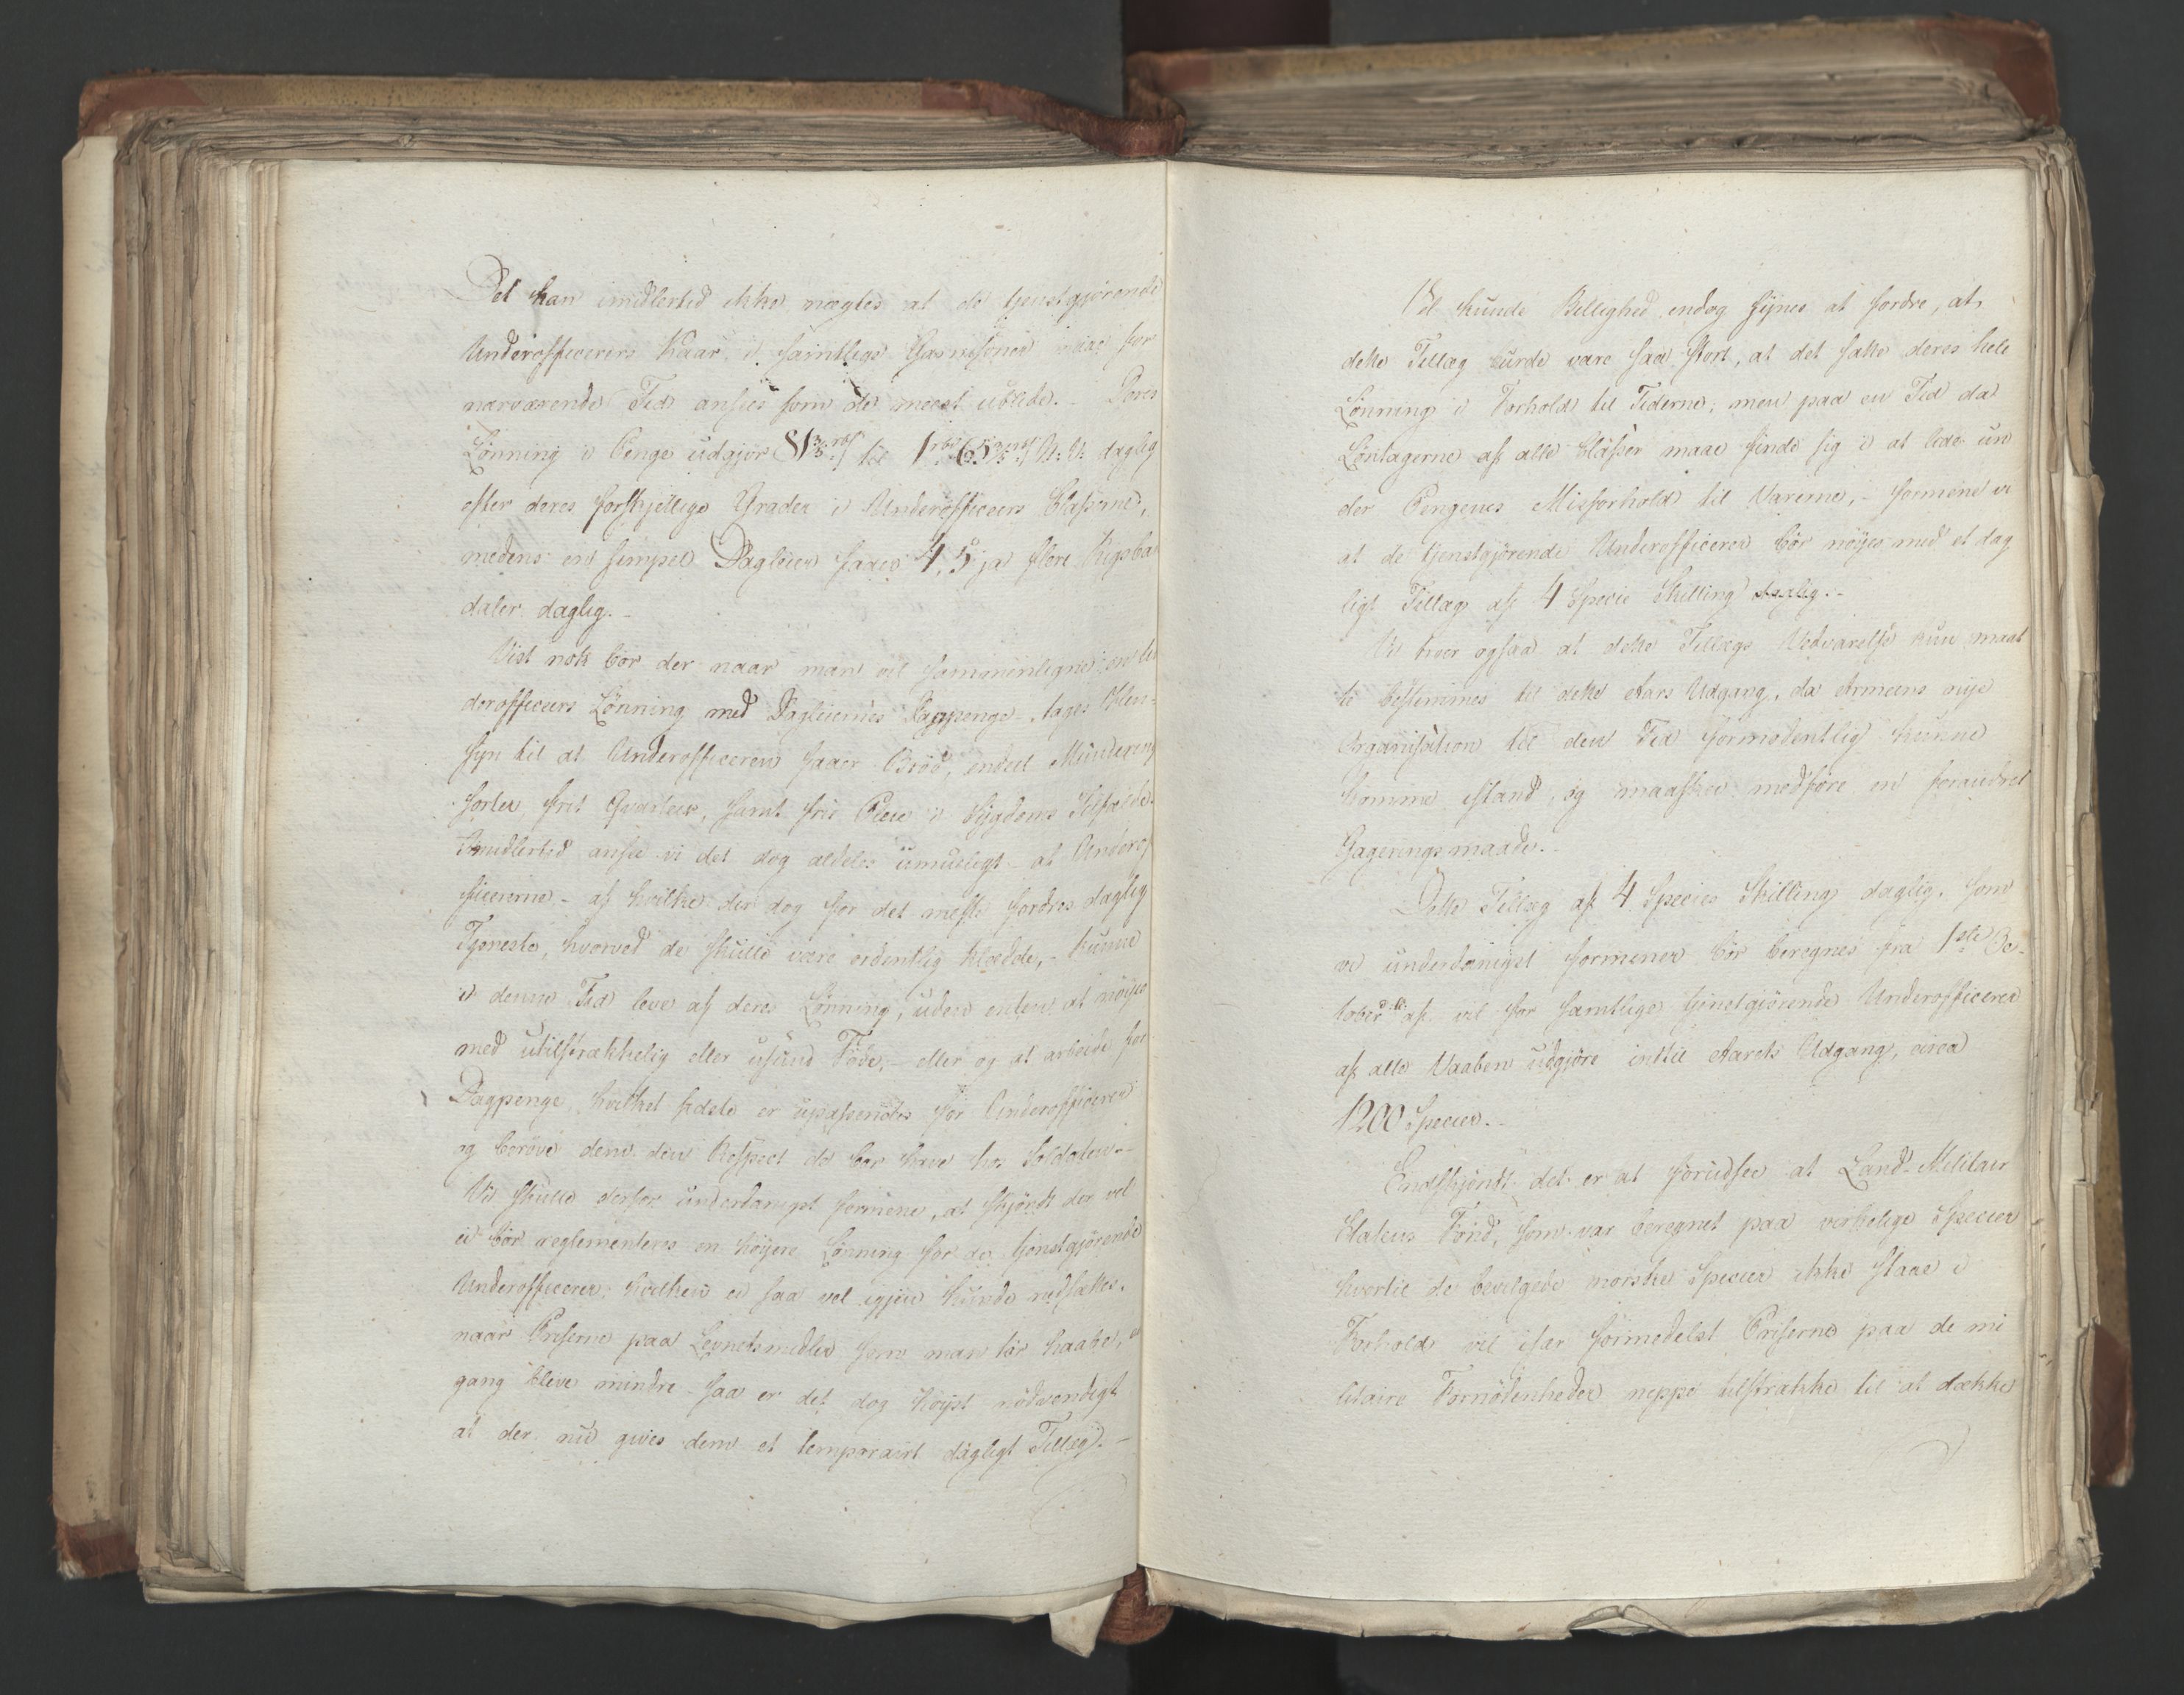 Det kan imidlertid ikke nægtes at de tjenstgjørende
Underofficerers Kaar i samtlige Garnisoner maae for
nærværende Tid ansees som de meest ublide. - Deres
Lønning i Penge udgjør til N: V: daglig
efter deres forskjellige Grader i Underofficeers Classerne,
medens en simpel Dagleier faaer 4, 5 ja flere Rigsba
daler daglig. -
Vist nok bør der naar man vil sammenligne en Un
derofficeers Lønning med Dagleiernes Dagpenge - tages Hen-
syn til at Underofficeren faaer Brød, endeel Mundering
sorter, frit Qvarteer, samt frie Pleie i Sygdoms Tilfælde.
Imidlertid ansee vi det dog aldeles umueligt - at Underof
ficererne - af hvilke der dog for det meste fordres daglig
Tjeneste, hvorved de skulle være ordentlig klædde, - kunne
i denne Tid leve af deres Lønning, uden enten at nøyes
med utilstrækkelig eller usund Føde, - eller og at arbeide for
Dagpenge, hvilket sidste er upassendes for Underofficerer
og berøve dem den Respect de bør have hos Soldaten. -
Vi skulle derfor underdanigst formene, at skjøndt der vel
ei bør reglementeres en høyere Lønning for de tjenstgjørende
Underofficerer, hvilken ei saa vel igjen kunde nedsættes,
naar Priserne paa Levnetsmidler som man tør haabe, en
gang bleve mindre - saa er det dog høyst nødvendigt
at der nu gives dem et temporairt dagligt Tillæg. -
Vel kunde Billighed endog synes at fordre, at
dette Tillæg burde være saa stort, at det satte deres hele
Lønning i Forhold til Tiderne; men paa en Tid da
Løntagerne af alle Classer maae finde sig i at lide un
der Pengenes Misforhold til Varerne, - formene vi
at de tjenstgjørende Underofficerer bør nøyes med et dag
ligt Tillæg af 4 Specie Skilling daglig. -
Vi troer ogsaa at dette Tillægs Vedvarelse kun maat
te bestemmes til dette Aars Udgang, da Armeens nye
Organisation til den Tid formodentlig kunne
komme istand, og maaskee medføre en forandret
Gageringsmaade. -
Dette Tillæg af 4 Species Skilling daglig, som
vi underdanigst formener bør beregnes fra 1ste Oc-
tober d: A: af, vil for samtlige tjenstgjørende Underofficerer
af alle Vaaben udgjøre indtil Aarets Udgang, circa
1200 Species. -
Endskjøndt det er at forudsee at Land-Militair
Etatens Fond, som var beregnet paa virkelige Species
hvortil de bevilgede norske Species ikke staae i
Forhold, vil især formedelst Priserne paa de mi
litaire Fornødenheder neppe tilstrække til at dække